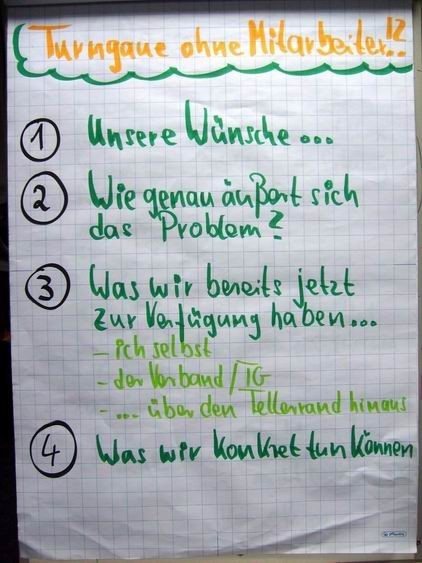 Turngaue ohne Mitarbeiter!?
1 Unsere Wünsche...
2 Wie genau äußert sich
das Problem?
3 Was wir bereits jetzt
zur Verfügung haben...
- ich selbst
- der Verband/TG
- ... über den Tellerrand hinaus
4 Was wir konkret tun können